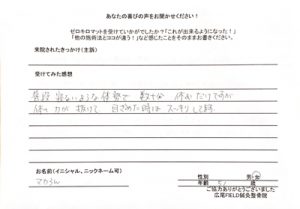 あなたの喜びの声をお聞かせください！
ゼロキロマットを受けていかがでしたか？「これが出来るようになった！」
「他の施術法とココが違う！」など感じたことをそのままお書きください。
来院されたきっかけ（主訴）
受けてみた感想
普段 寝ないような体勢で 数十分 休むだけですが
体の力が抜けて 目ざめた時は スッキリしてます
お名前（イニシャル、ニックネーム可）
性別 男・女
年齢 歳
ご協力ありがとうございました
広尾FIELD鍼灸整骨院